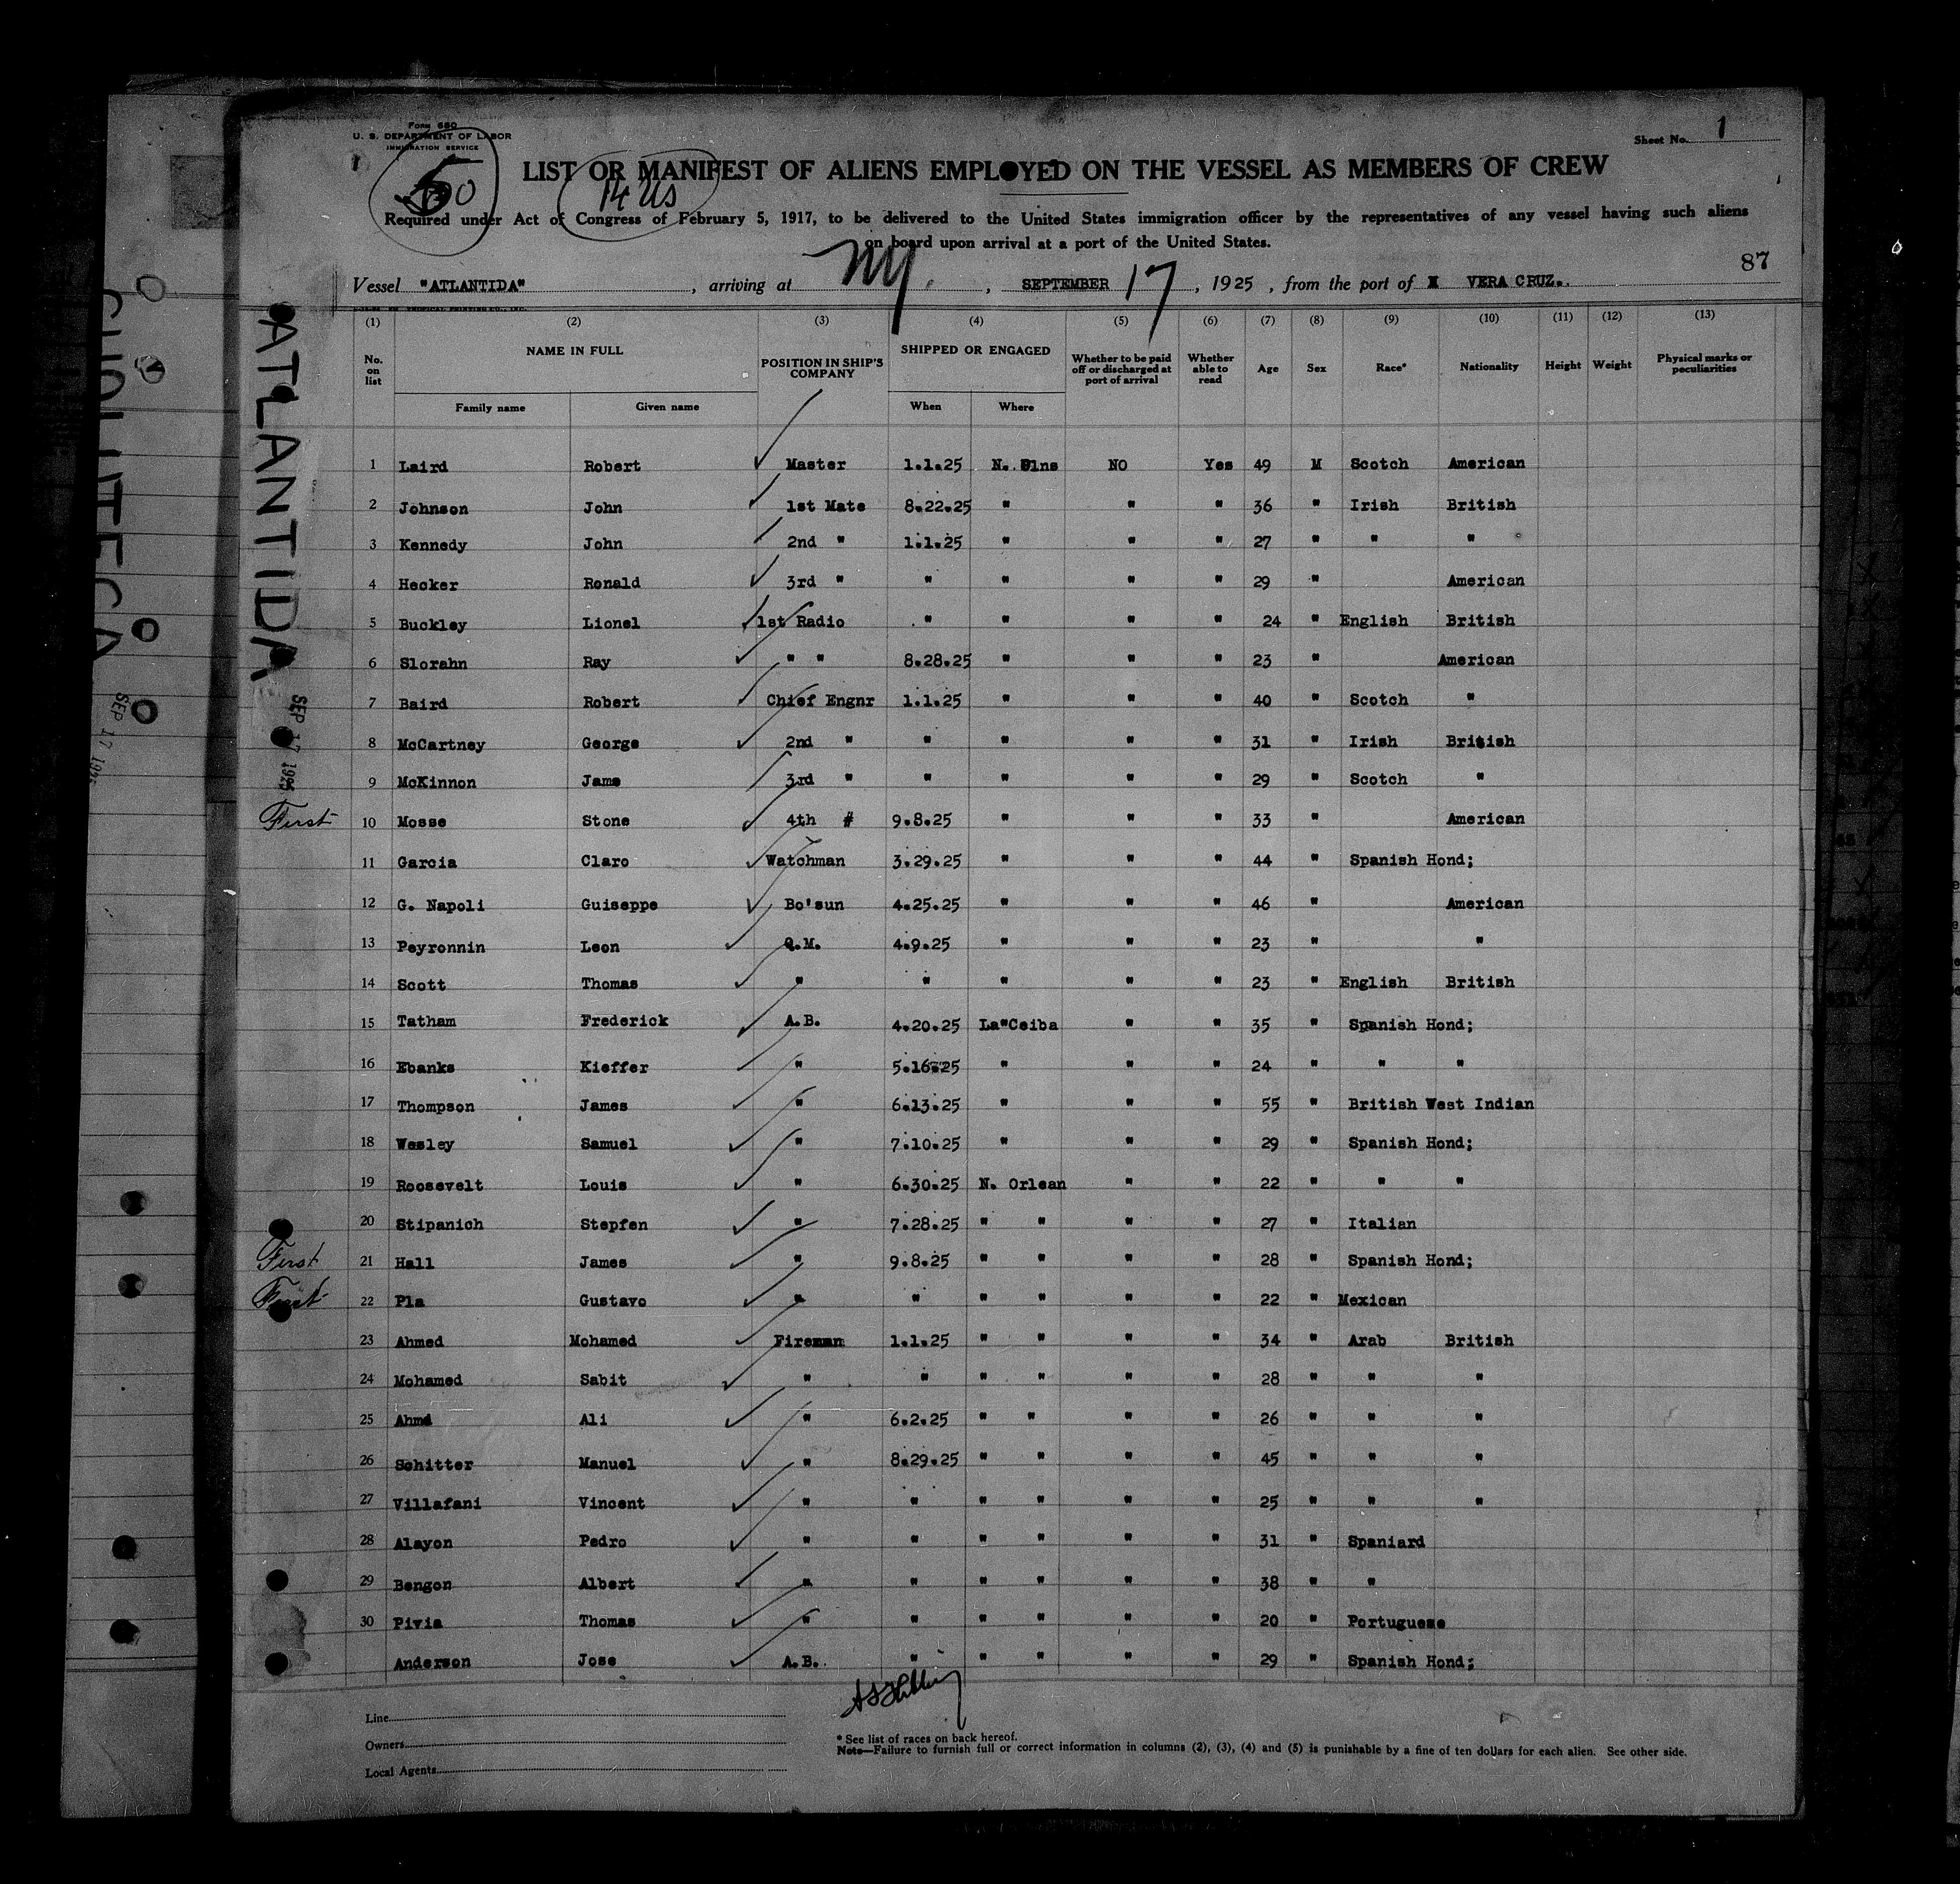 Form 680
U. S. DEPARTMENT OF LABOR
IMMIGRATION SERVICE
Sheet No. 1
LIST OR MANIFEST OF ALIENS EMPLOYED ON THE VESSEL AS MEMBERS OF CREW
14 US
Required under Act of Congress of February 5, 1917, to be delivered to the United States immigration officer by the representatives of any vessel having such aliens
on board upon arrival at a port of the United States.
87
Vessel "ATLANTIDA", arriving at NY., SEPTEMBER 17, 1925, from the port of VERA CRUZ..
ATLANTIDA
SEP 17 1925
SEP 17 1925
(1) (2) (3) (4) (5) (6) (7) (8) (9) (10) (11) (12) (13)
No. on list NAME IN FULL POSITION IN SHIP'S COMPANY SHIPPED OR ENGAGED Whether to be paid off or discharged at port of arrival Whether able to read Age Sex Race* Nationality Height Weight Physical marks or peculiarities
Family name Given name When Where
1 Laird Robert Master 1.1.25 N. Olns NO Yes 49 M Scotch American
2 Johnson John 1st Mate 8.22.25 " " " 36 " Irish British
3 Kennedy John 2nd " 1.1.25 " " " 27 " " "
4 Hecker Ronald 3rd " " " " " 29 " American
5 Buckley Lionel 1st Radio " " " " 24 " English British
6 Slorahn Ray " " 8.28.25 " " " 23 " American
7 Baird Robert Chief Engnr 1.1.25 " " " 40 " Scotch "
8 McCartney George 2nd " " " " " 31 " Irish British
9 McKinnon Jame 3rd " " " " " 29 " Scotch "
First 10 Mosse Stone 4th # 9.8.25 " " " 33 " American
11 Garcia Claro Watchman 3.29.25 " " " 44 " Spanish Hond;
12 G. Napoli Guiseppe Bo'sun 4.25.25 " " " 46 " American
13 Peyronnin Leon Q.M. 4.9.25 " " " 23 " "
14 Scott Thomas " " " " " 23 " English British
15 Tatham Frederick A.B. 4.20.25 La"Ceiba " " 35 " Spanish Hond;
16 Ebanks Kieffer " 5.16.25 " " " 24 " " "
17 Thompson James " 6.13.25 " " " 55 " British West Indian
18 Wesley Samuel " 7.10.25 " " " 29 " Spanish Hond;
19 Roosevelt Louis " 6.30.25 N. Orlean " " 22 " " "
20 Stipanich Stepfen " 7.28.25 " " " " 27 " Italian
First 21 Hall James " 9.8.25 " " " " 28 " Spanish Hond;
First 22 Pla Gustavo " " " " " " 22 " Mexican
23 Ahmed Mohamed Fireman 1.1.25 " " " " 34 " Arab British
24 Mohamed Sabit " " " " " " 28 " " "
25 Ahmd Ali " 6.2.25 " " " " 26 " " "
26 Schitter Manuel " 8.29.25 " " " " 45 " " "
27 Villafani Vincent " " " " " " 25 " " "
28 Alayon Pedro " " " " " " 31 " Spaniard
29 Bengon Albert " " " " " " 38 " "
30 Pivia Thomas " " " " " " 20 " Portuguese
Anderson Jose A.B. " " " " " 29 " Spanish Hond;
Line
Owners
Local Agents
* See list of races on back hereof.
Note—Failure to furnish full or correct information in columns (2), (3), (4) and (5) is punishable by a fine of ten dollars for each alien. See other side.